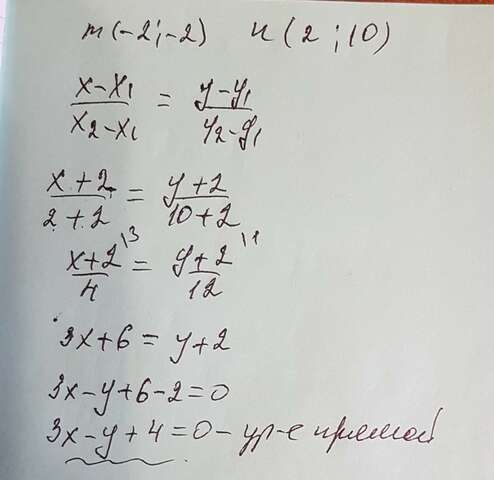 m(-2;-2) n(2;10)
x-x₁/x₂-x₁ = y-y₁/y₂-y₁
x+2/2+2 = y+2/10+2
x+2/4 \3 = y+2/12 \1
3x+6 = y+2
3x-y+6-2=0
3x-y+4=0 - ур-е прямой